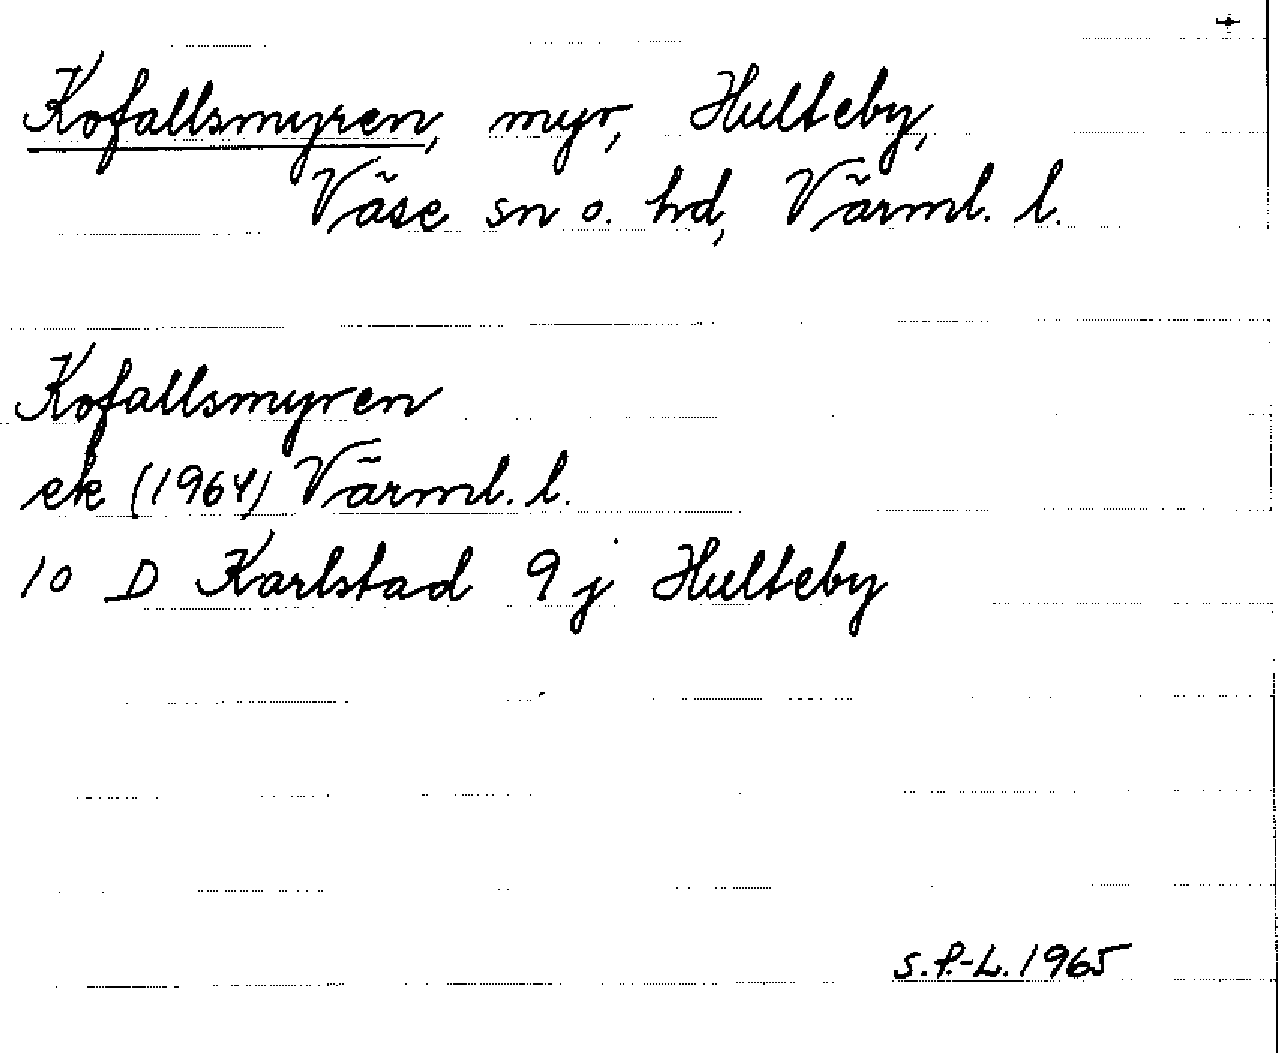 Kofallsmyren, myr, Hulteby,
Väse sn o. hd, Värml. l.
Kofallsmyren
ek (1964) Värml. l.
10 D Karlstad 9 j Hulteby
S.P.-L. 1965